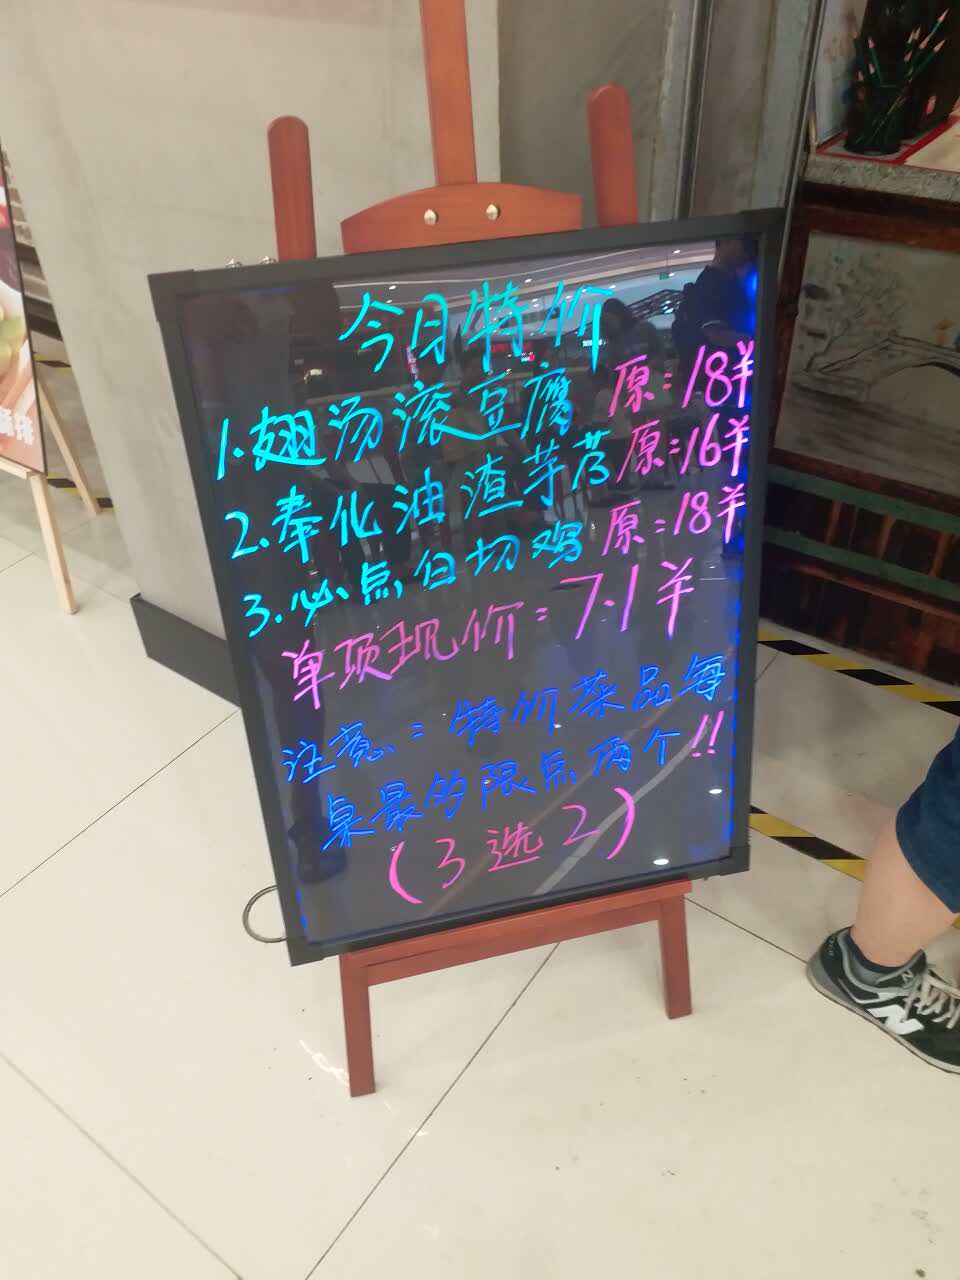 今月特价
1.翅汤滚豆腐 原:18半
2.奉化油渣芋艿 原:16半
3.必点白切鸡 原:18半
单项现价:7.1半
注意:特价菜品每
桌最多限点两个!!
(3选2)